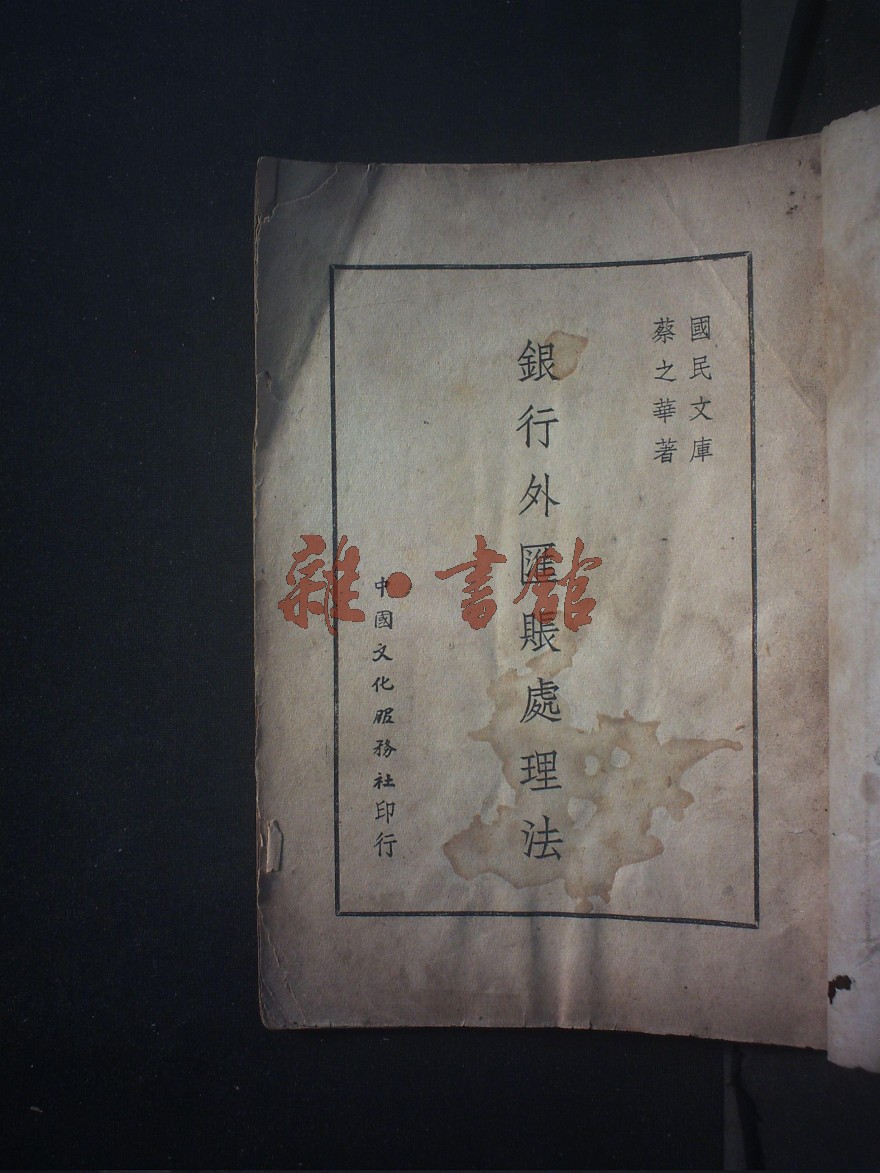 國民文庫
蔡之華著
銀行外匯賬處理法
中國文化服務社印行
雜·書館